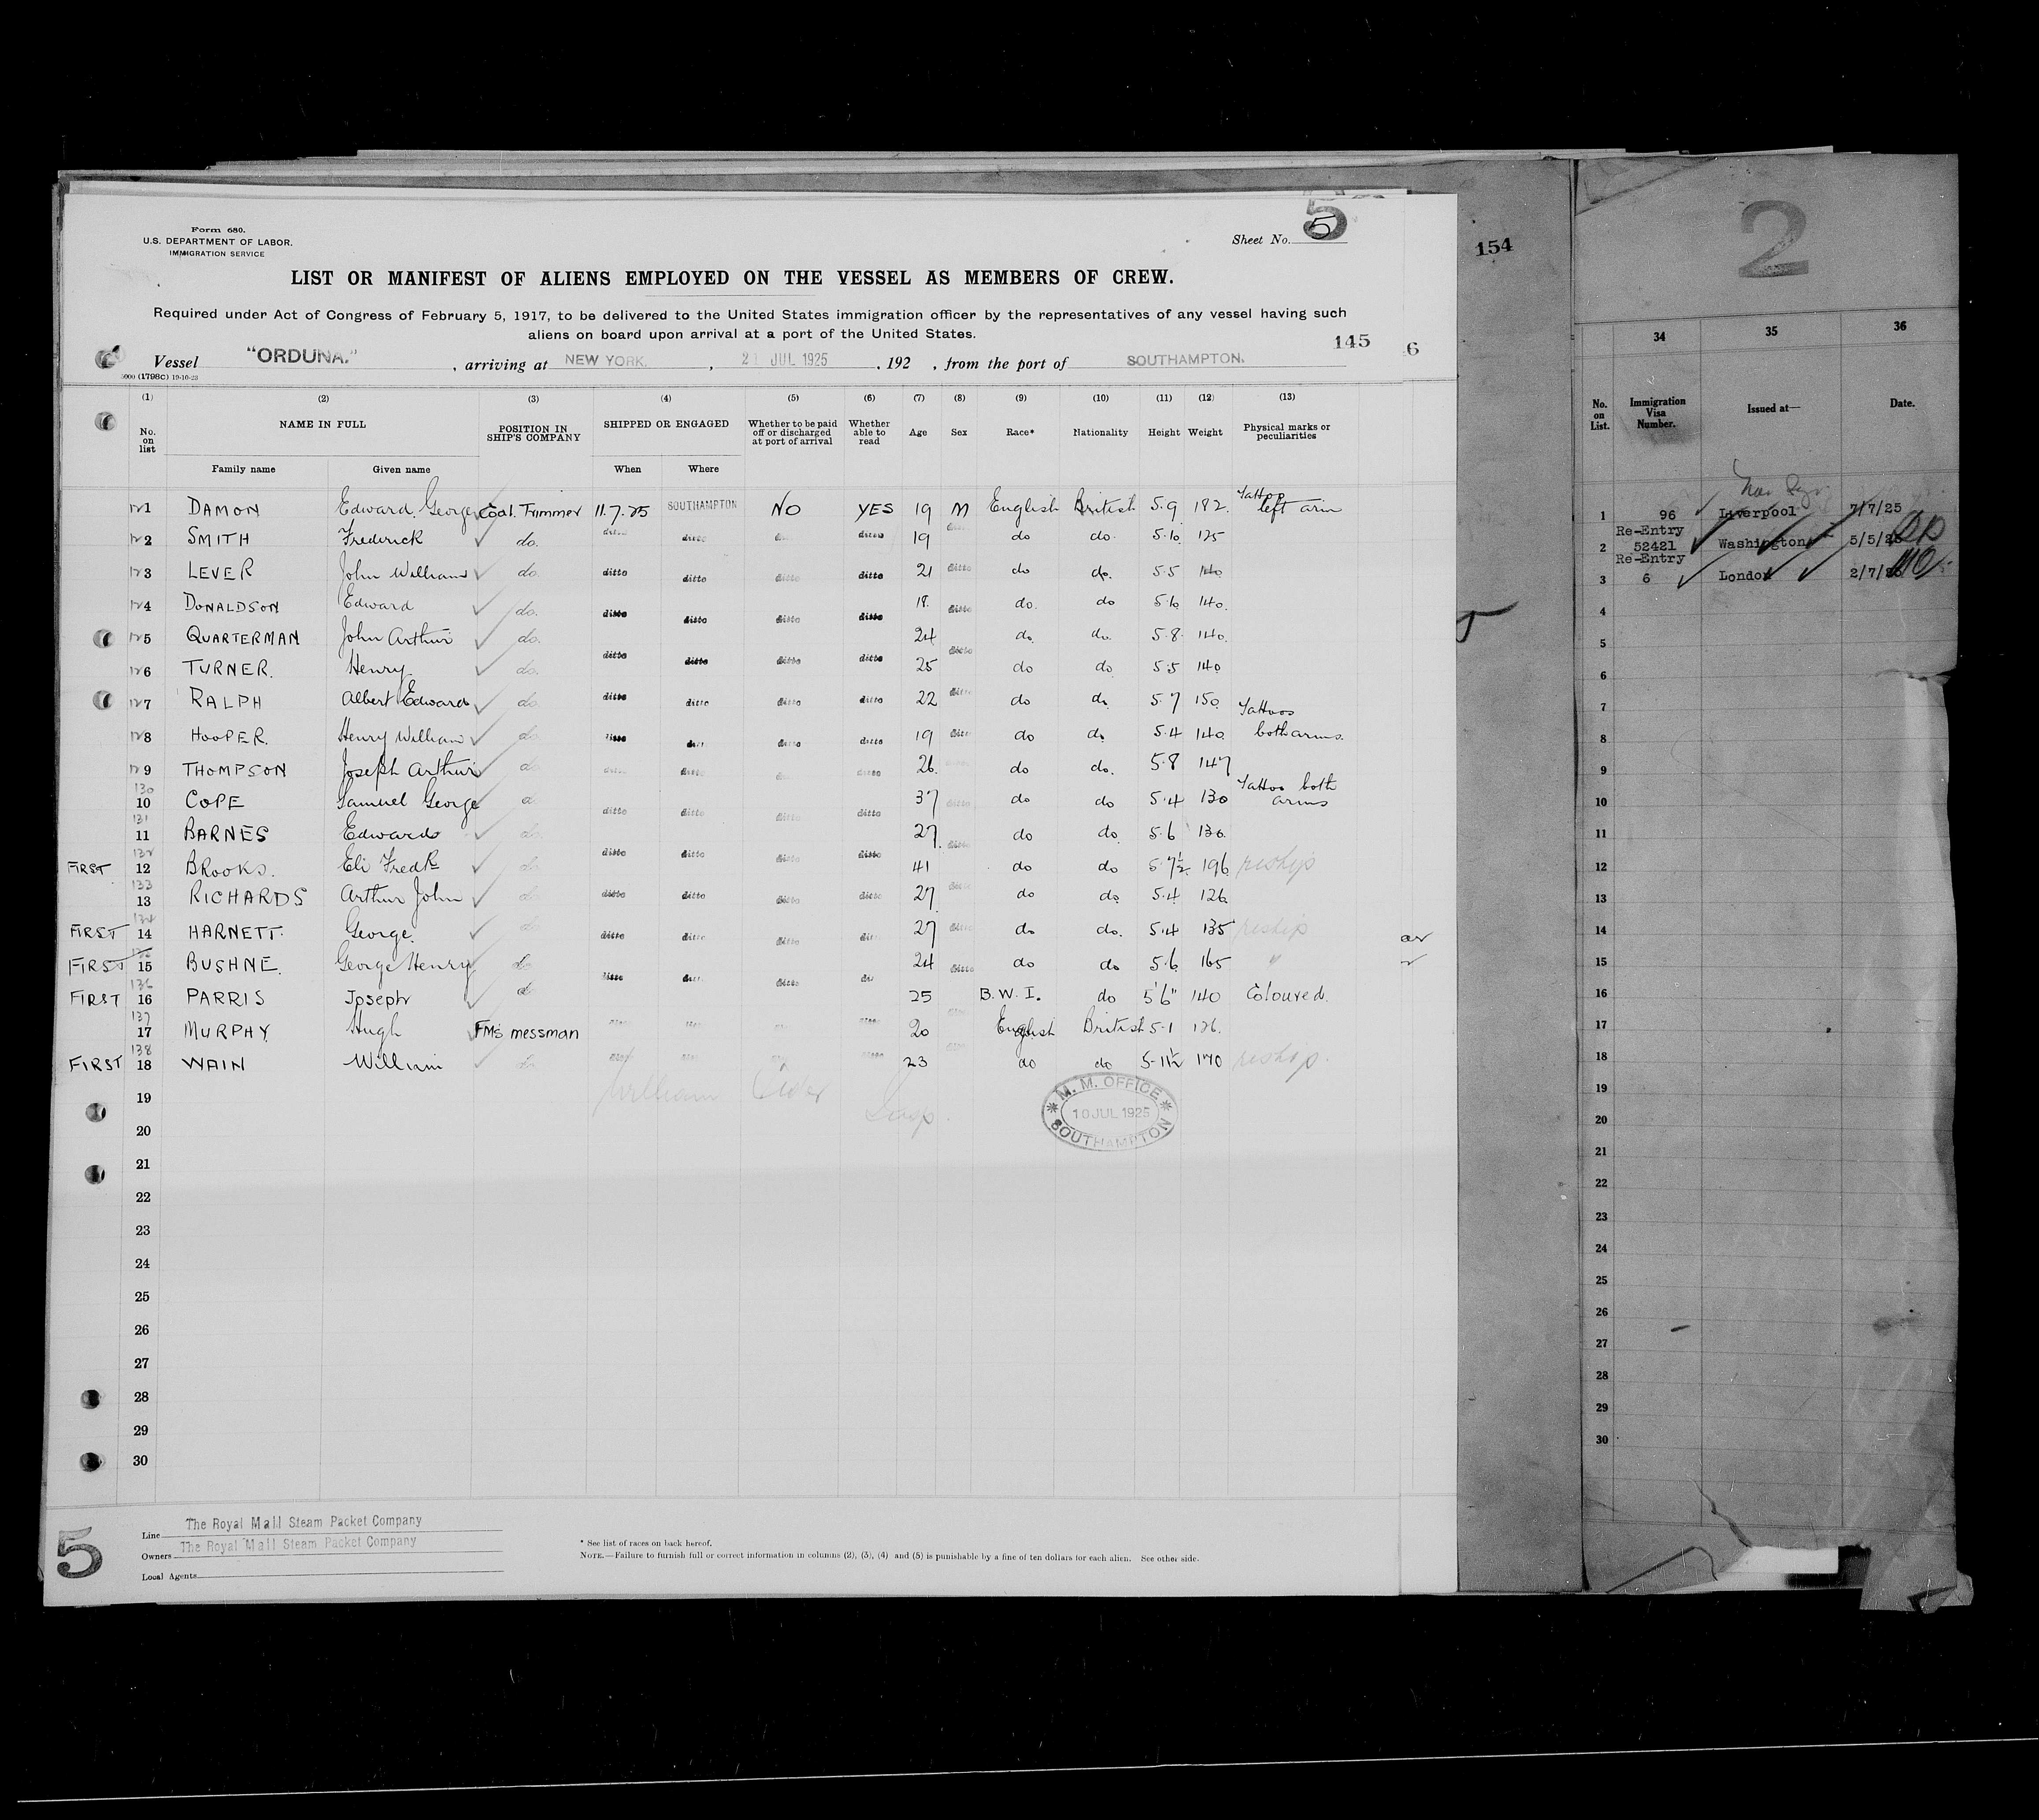 Form 680.
U.S. DEPARTMENT OF LABOR.
IMMIGRATION SERVICE
Sheet No. 5
5
LIST OR MANIFEST OF ALIENS EMPLOYED ON THE VESSEL AS MEMBERS OF CREW.
Required under Act of Congress of February 5, 1917, to be delivered to the United States immigration officer by the representatives of any vessel having such
aliens on board upon arrival at a port of the United States.
145
Vessel "ORDUNA." , arriving at NEW YORK. , 21 JUL 1925 , 192 , from the port of SOUTHAMPTON.
5000 (1798C) 19-10-23
(1) (2) (3) (4) (5) (6) (7) (8) (9) (10) (11) (12) (13)
No. on list NAME IN FULL POSITION IN SHIP'S COMPANY SHIPPED OR ENGAGED Whether to be paid off or discharged at port of arrival Whether able to read Age Sex Race* Nationality Height Weight Physical marks or peculiarities
Family name Given name When Where
1 DAMON Edward George Coal Trimmer 11.7.25 SOUTHAMPTON NO YES 19 M English British 5.9 182 Tattoo left arm
2 SMITH Frederick do. ditto ditto ditto 19 do do 5.10 125
3 LEVER John William do. ditto ditto ditto ditto 21 ditto do do. 5.5 140
4 DONALDSON Edward do. ditto ditto ditto ditto 18 ditto do. do 5.10 140.
5 QUARTERMAN John Arthur do. ditto ditto ditto ditto 24 ditto do. do. 5.8 140.
6 TURNER. Henry do. 25 do do 5.5 140
7 RALPH Albert Edward do. ditto ditto ditto ditto 22 ditto do do 5.7 150
8 HOOPER. Henry William do. ditto ditto ditto ditto 19 ditto do do 5.4 140 Tattoos both arms.
9 THOMPSON Joseph Arthur do ditto ditto 26. do do. 5.8 147
130
10 COPE Samuel George do ditto ditto ditto ditto 37 ditto do do 5.4 130 Tattoo both arms
131
11 BARNES Edward do. 27. do do 5.6 130.
132
FIRST 12 BROOKS. Eli Fredk do. ditto ditto ditto ditto 41 do do 5.7½ 196 reship
133
13 RICHARDS Arthur John do. ditto ditto ditto ditto 27 ditto do do 5.4 126
134
FIRST 14 HARNETT. George. do ditto ditto ditto ditto 27 ditto do do. 5.4 135 reship
FIRST 15 BUSHNE. George Henry do. ditto ditto ditto 24 ditto do do 5.6 165 "
136
FIRST 16 PARRIS Joseph do 25 B.W.I. do 5'6" 140 Coloured.
137
17 MURPHY Hugh FMs messman 20 English British 5.1 126.
138
FIRST 18 WAIN William do 23 do do 5-11½ 170 reship.
19
20
21
22
23
24
25
26
27
28
29
30
William
M. M. OFFICE
10 JUL 1925
SOUTHAMPTON
5
Line The Royal Mail Steam Packet Company
Owners The Royal Mail Steam Packet Company
Local Agents
* See list of races on back hereof.
NOTE.—Failure to furnish full or correct information in columns (2), (3), (4) and (5) is punishable by a fine of ten dollars for each alien. See other side.
6
154
2
34 35 36
No. on List. Immigration Visa Number. Issued at— Date.
1 96 Liverpool 7/7/25
Re-Entry
2 52421 Washington 5/5/25
Re-Entry
3 6 London 2/7/25
4
5
6
7
8
9
10
11
12
13
14
15
16
17
18
19
20
21
22
23
24
25
26
27
28
29
30